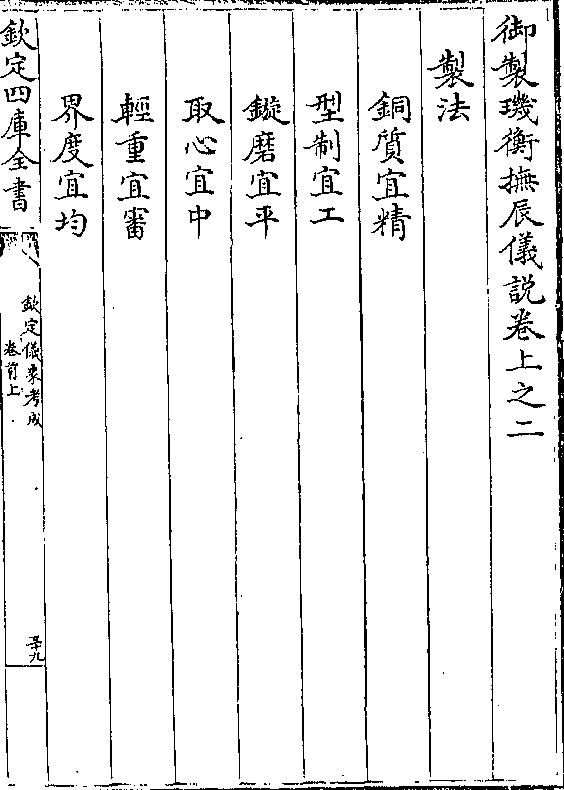 御製璣衡撫辰儀說卷上之二
製法
銅質宜精
型制宜工
鏇磨宜平
取心宜中
輕重宜審
界度宜均
欽定四庫全書
欽定儀象考成
卷首上
五十九